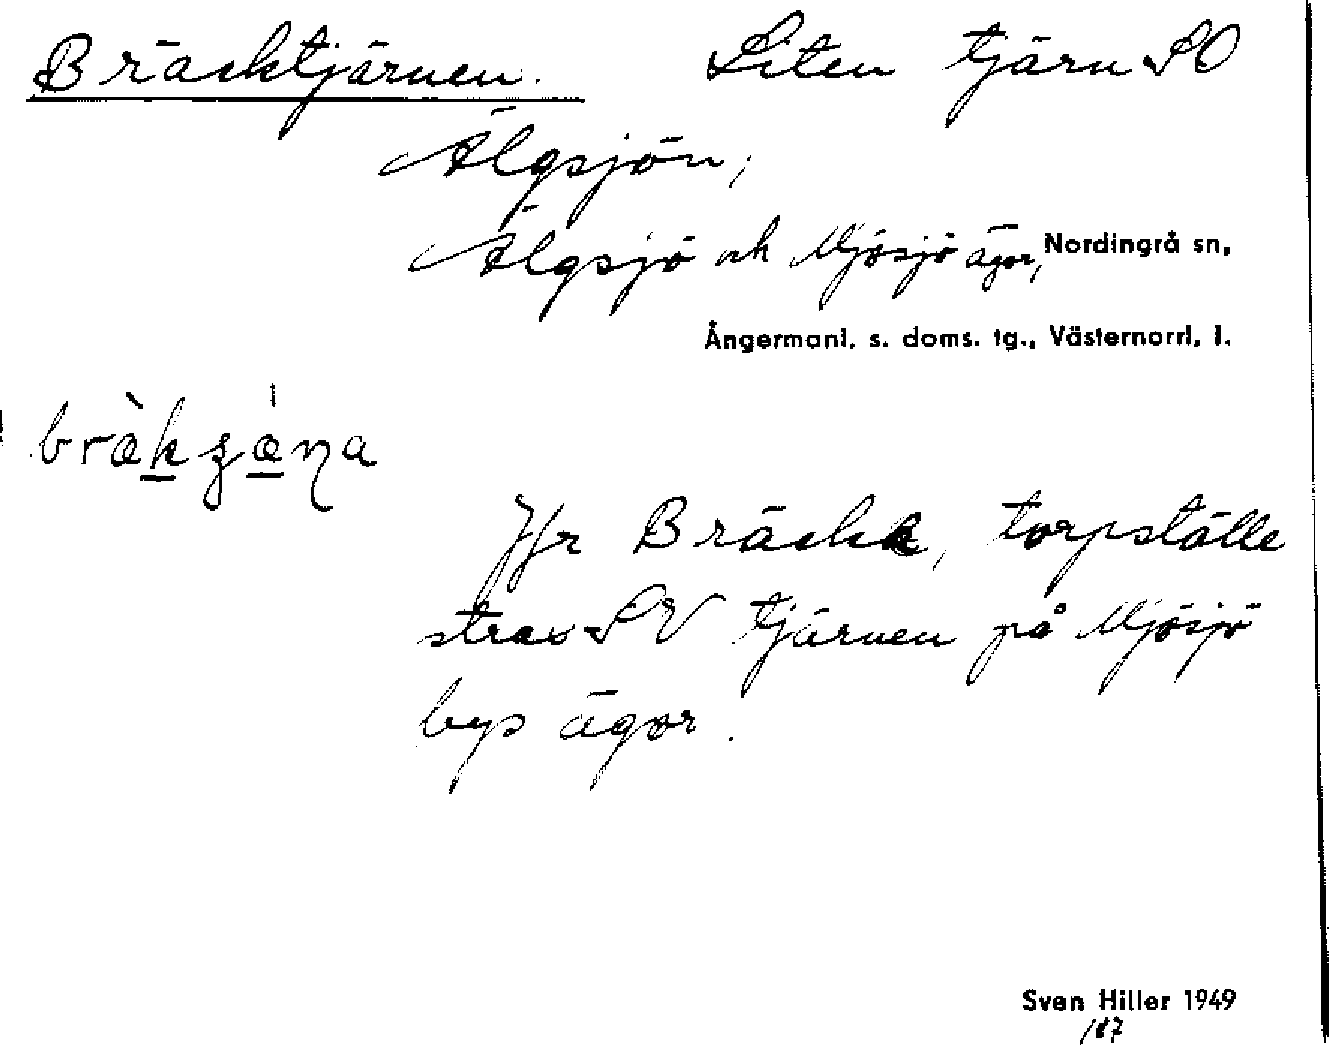 Bräcktjärnen. Liten tjärn SO
Älgsjön,
Älgsjö och Mjösjö ägor, Nordingrå sn,
Ångermanl. s. doms. tg., Västernorrl. l.
Jfr Bräcke, torpställe
strax SV tjärnen på Mjösjö
bys ägor.
Sven Hiller 1949
187